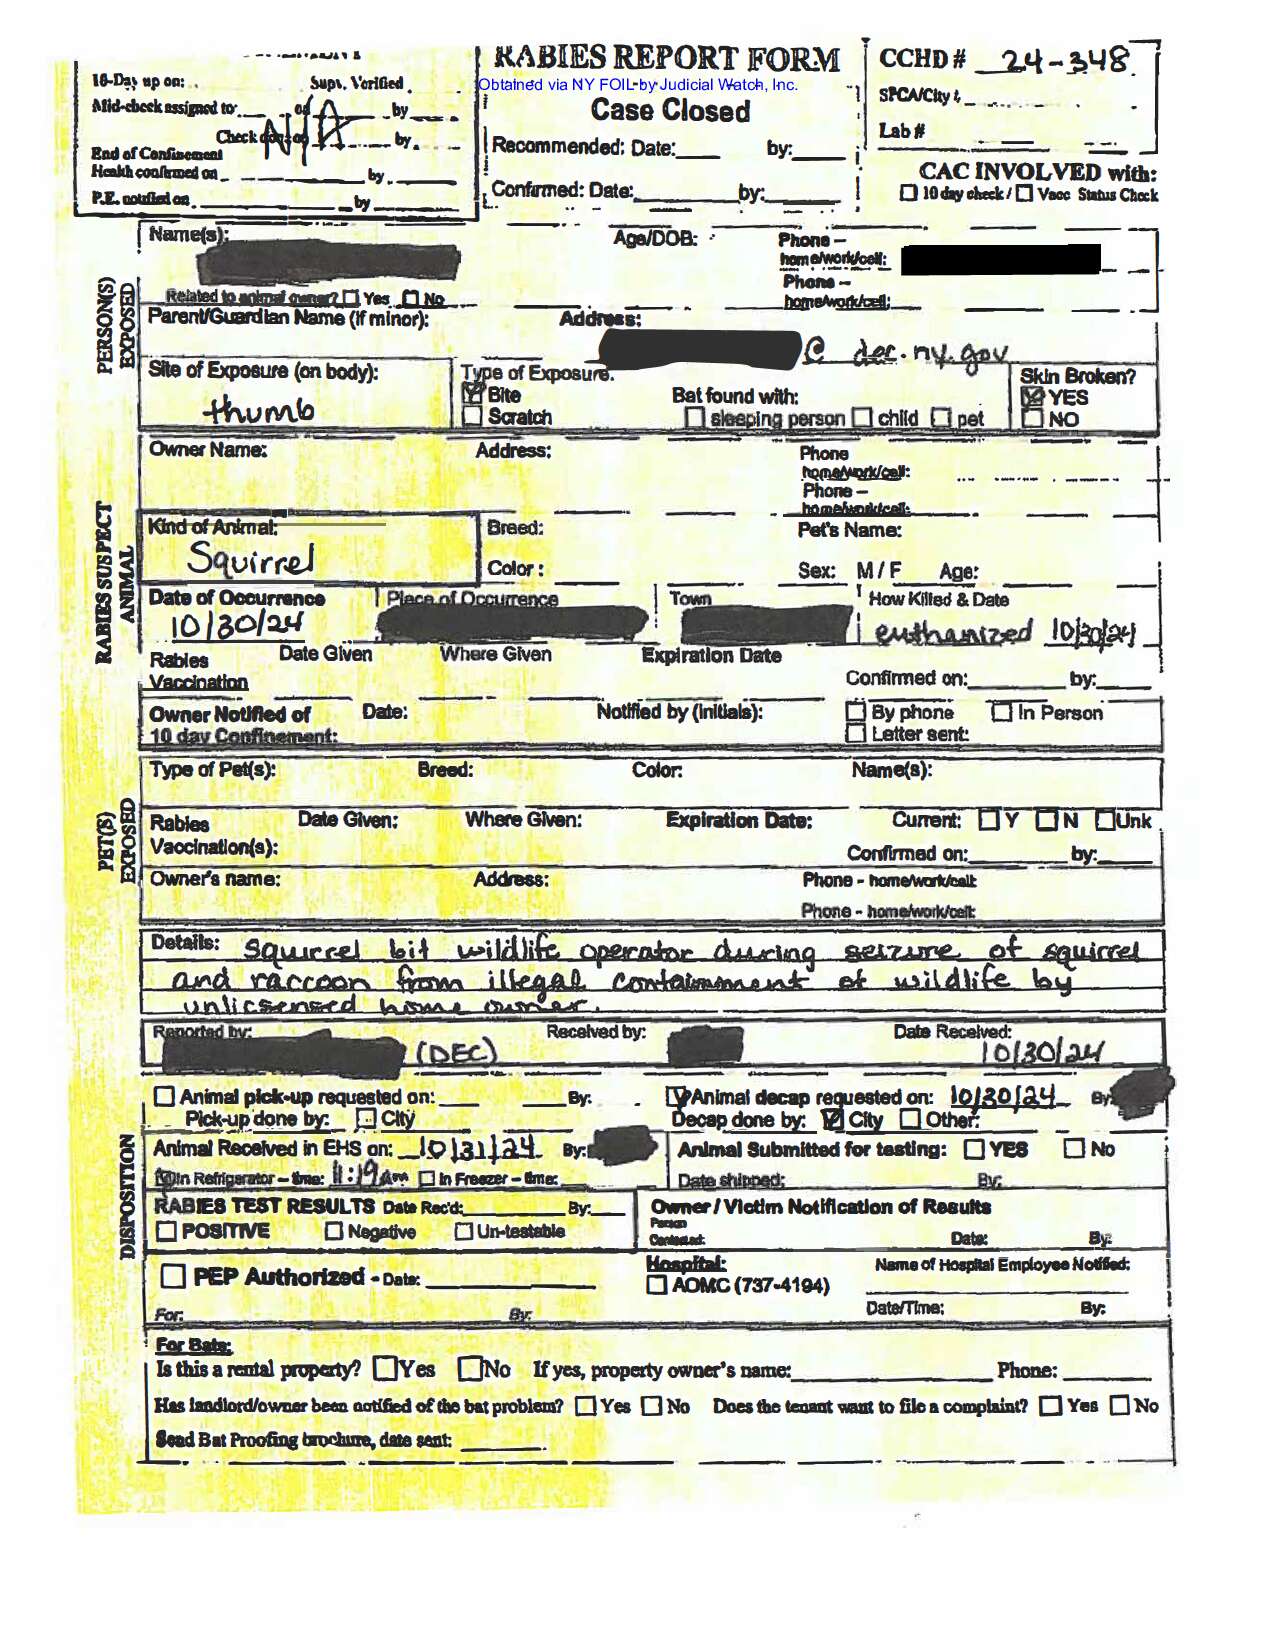 RABIES REPORT FORM
Obtained via NY FOIL by Judicial Watch, Inc.
Case Closed
Recommended: Date: by:
Confirmed: Date: by:
CCHD # 24-348
SPCA/City #
Lab #
CAC INVOLVED with:
☐ 10 day check / ☐ Vacc Status Check
up on: Supv. Verified
Mid-check assigned to: on by
Check by
N/A
End of Confinement
Health confirmed on by
P.E. notified on by
PERSON(S) EXPOSED
Name(s): Age/DOB: Phone –
home/work/cell:
Phone –
home/work/cell:
Related to animal owner? ☐ Yes ☐ No
Parent/Guardian Name (if minor): Address:
@ dec.ny.gov
Site of Exposure (on body): Type of Exposure. Skin Broken?
thumb
☒ Bite Bat found with: ☒ YES
☐ Scratch ☐ sleeping person ☐ child ☐ pet ☐ NO
RABIES SUSPECT ANIMAL
Owner Name: Address: Phone
home/work/cell:
Phone –
home/work/cell:
Kind of Animal: Breed: Pet's Name:
Squirrel
Color: Sex: M / F Age:
Date of Occurrence Place of Occurrence Town How Killed & Date
10/30/24 euthanized 10/30/24
Rabies Date Given Where Given Expiration Date
Vaccination Confirmed on: by:
Owner Notified of Date: Notified by (initials): ☐ By phone ☐ In Person
10 day Confinement: ☐ Letter sent:
PET(S) EXPOSED
Type of Pet(s): Breed: Color: Name(s):
Rabies Date Given: Where Given: Expiration Date: Current: ☐ Y ☐ N ☐ Unk
Vaccination(s): Confirmed on: by:
Owner's name: Address: Phone - home/work/cell:
Phone - home/work/cell:
Details: Squirrel bit wildlife operator during seizure of squirrel
and raccoon from illegal containmment of wildlife by
unlicsensed home owner.
Reported by: Received by: Date Received:
(DEC) 10/30/24
DISPOSITION
☐ Animal pick-up requested on: By: ☑ Animal decap requested on: 10/30/24 By:
Pick-up done by: ☐ City Decap done by: ☑ City ☐ Other:
Animal Received in EHS on: 10/31/24 By: Animal Submitted for testing: ☐ YES ☐ No
☑ In Refrigerator – time: 11:19 am ☐ In Freezer – time: Date shipped: By:
RABIES TEST RESULTS Date Rec'd: By: Owner / Victim Notification of Results
☐ POSITIVE ☐ Negative ☐ Un-testable Person Contacted: Date: By:
☐ PEP Authorized - Date: Hospital: Name of Hospital Employee Notified:
☐ AOMC (737-4194)
For: By: Date/Time: By:
For Bats:
Is this a rental property? ☐ Yes ☐ No If yes, property owner's name: Phone:
Has landlord/owner been notified of the bat problem? ☐ Yes ☐ No Does the tenant want to file a complaint? ☐ Yes ☐ No
Send Bat Proofing brochure, date sent: